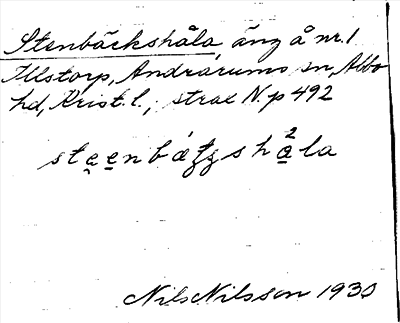 Stenbäckshåla, äng å nr. 1
Illstorp, Andrarums sn, Albo
hd, Krist. l., strax N. p 492
steenbætzshåla
Nils Nilsson 1930